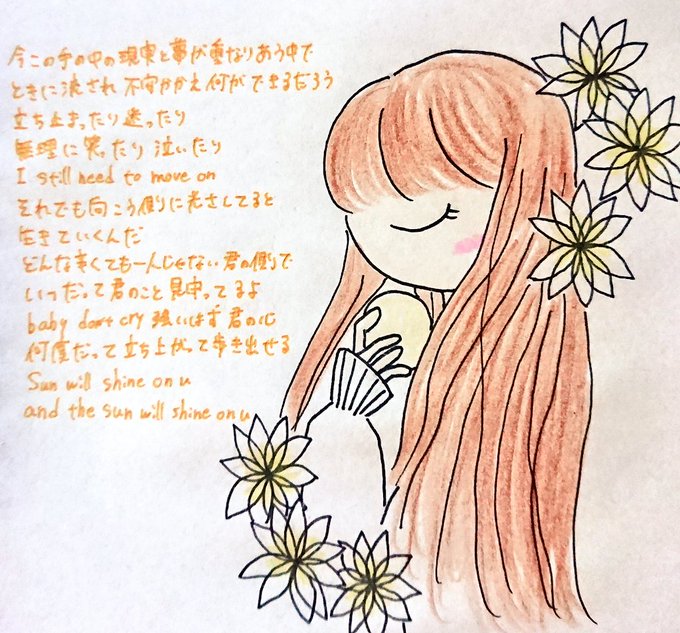 今この手の中の現実と夢が重なりあう中で
ときに流され不安かかえ何ができるだろう
立ち止まったり迷ったり
無理に笑ったり泣いたり
I still need to move on
それでも向こう側に光さしてると
生きていくんだ
どんな辛くても一人じゃない君の側で
いつだって君のこと見守ってるよ
baby don't cry 強いはず君の心
何度だって立ち上がって歩き出せる
Sun will shine on u
and the sun will shine on u